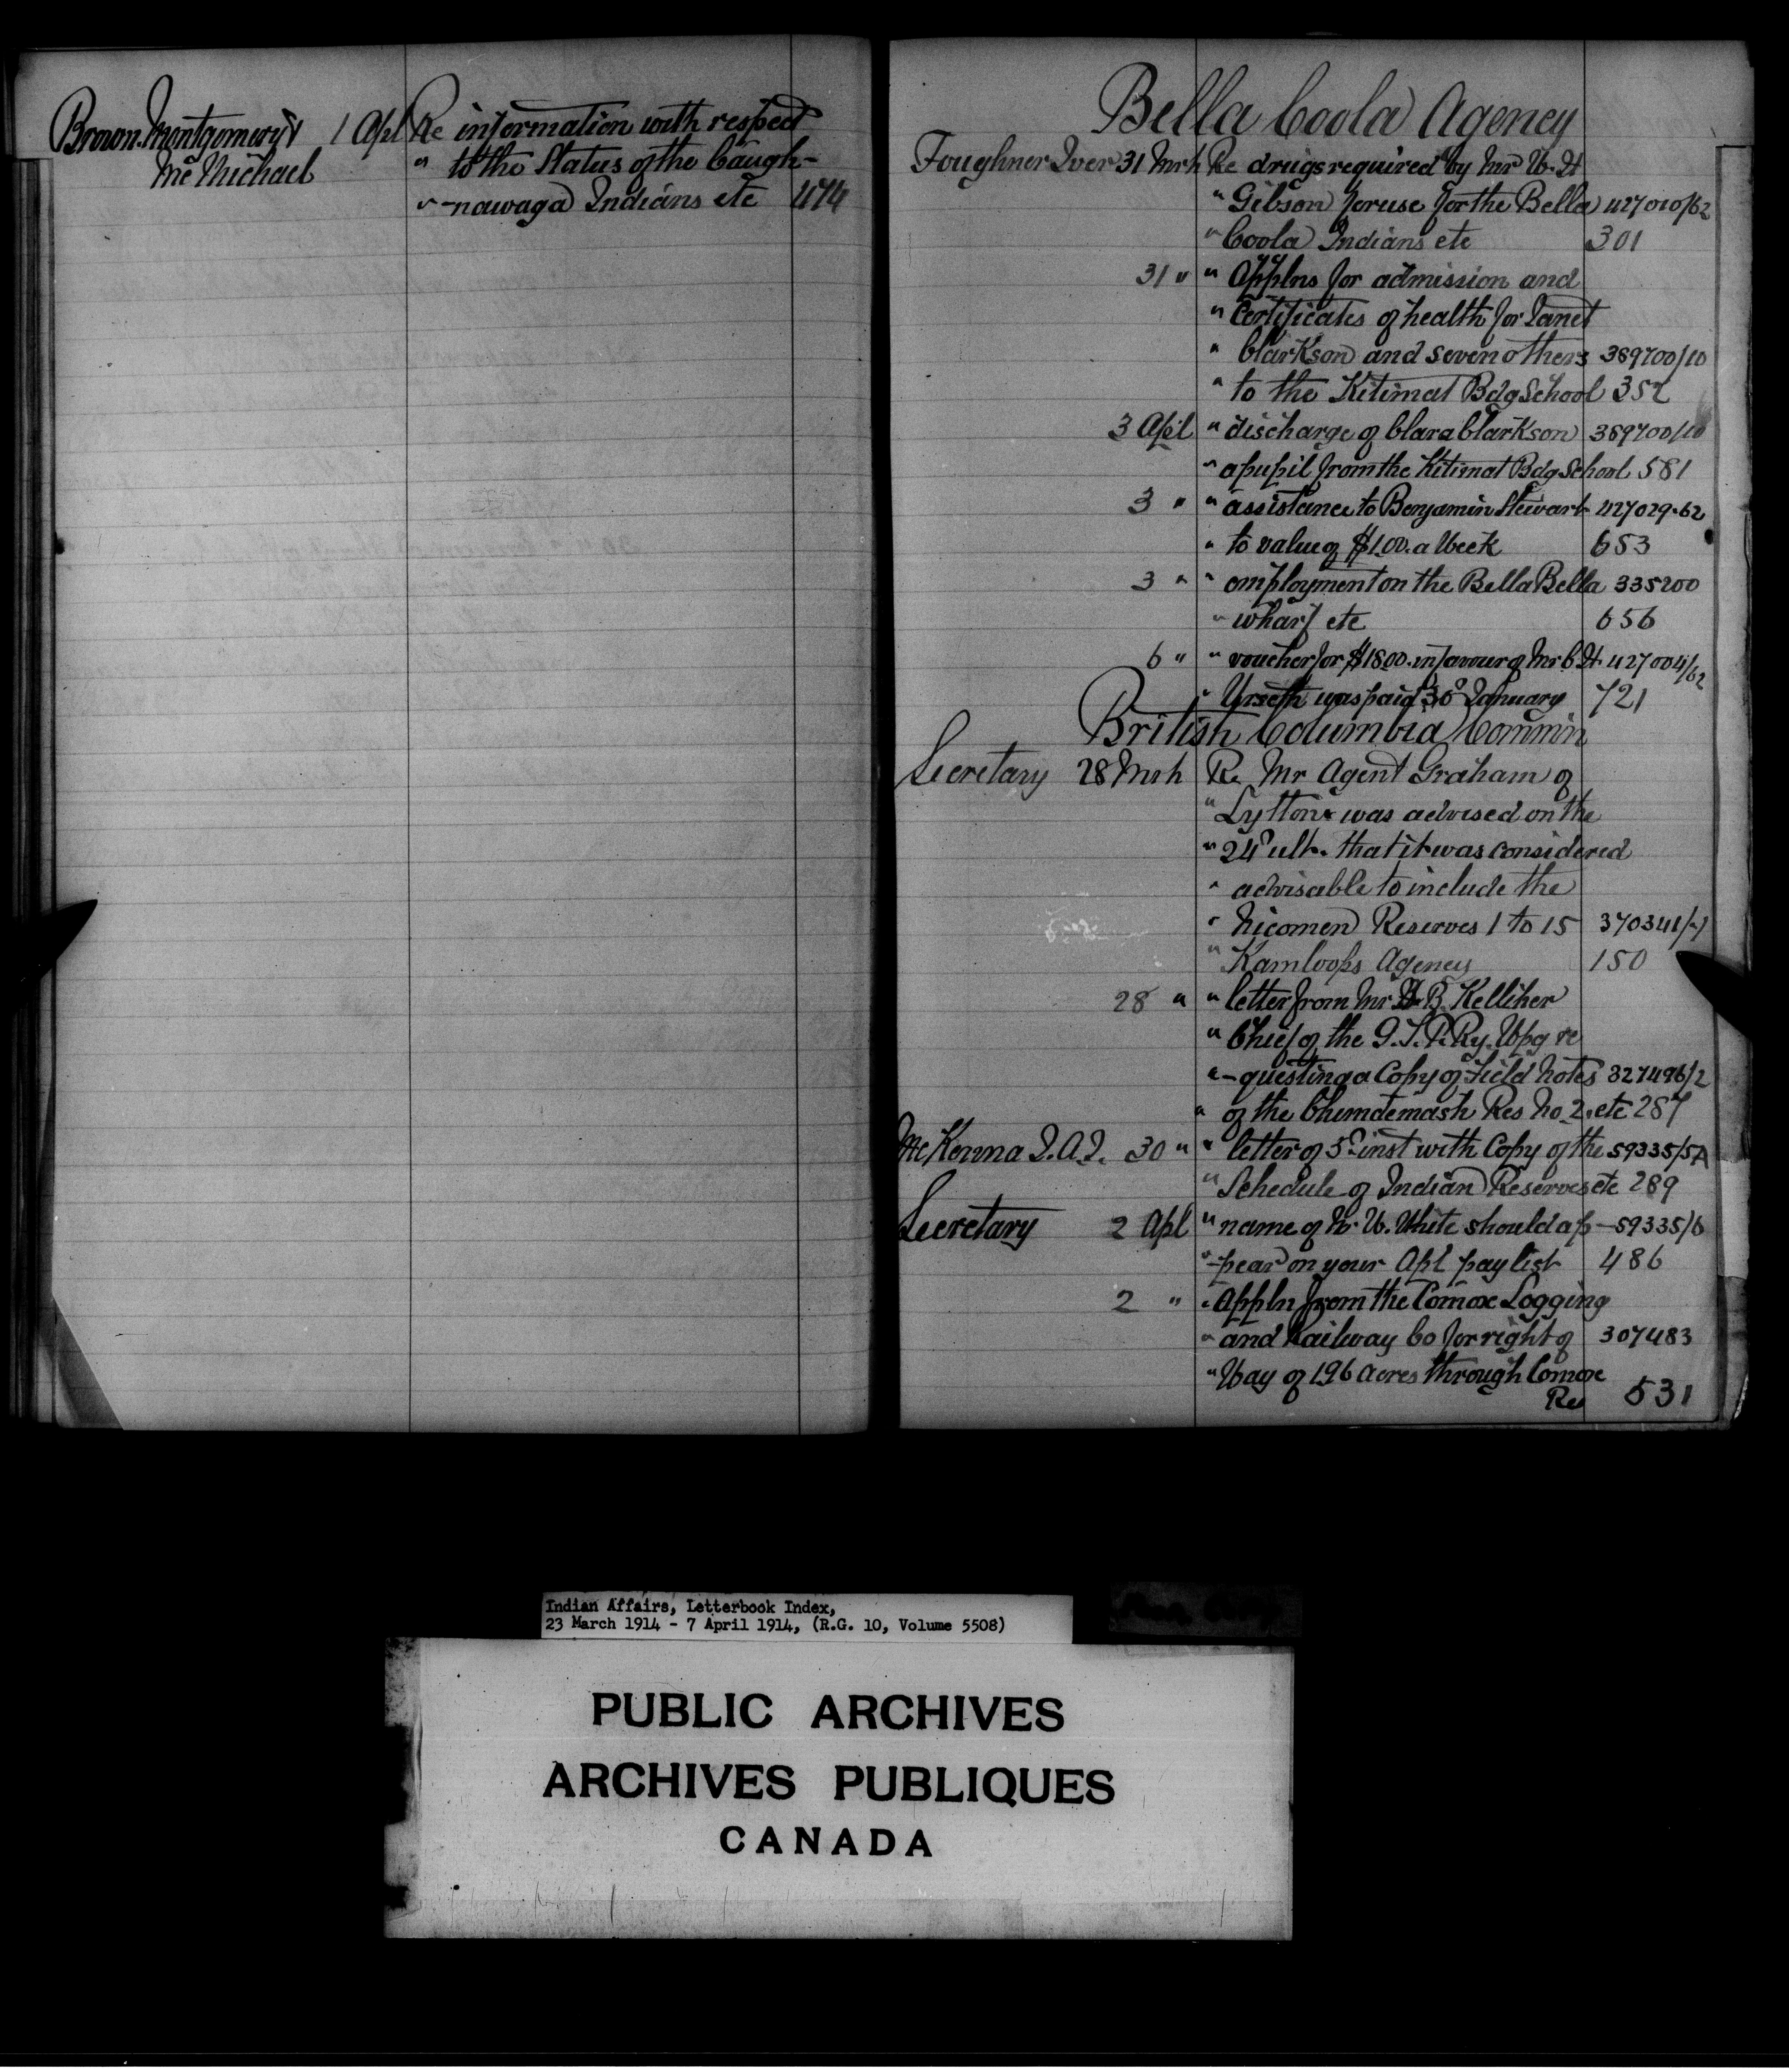 Brown. Montgomery & 1 Apl Re information with respect
Mc Michael " to the Status of the Caugh-
" -nawaga Indians etc 474
Bella Coola Agency
Foughner Iver 31 Mrh Re drugs required by Mr W. H
" Gibson for use for the Bella 427010/62
" Coola Indians etc 301
31 " " Applns for admission and
" Certificates of health for Janet
" Clarkson and seven others 389700/10
" to the Kitimat Bdg School 352
3 Apl " discharge of Clara Clarkson 389700/10
" a pupil from the Kitimat Bdg School 581
3 " " assistance to Benjamin Stewart 427029-62
" to value of $1.00. a Week 653
3 " " employment on the Bella Bella 335200
" wharf etc 656
6 " " voucher for $18.00. in favour of Mr C. H. 427004/62
" was paid 30° January 721
British Columbia Commin
Secretary 28 Mrh Re Mr Agent Graham of
" Lytton was advised on the
" 24° ult. that it was considered
" advisable to include the
" Nicomen Reserves 1 to 15 370341/-1
" Kamloops Agency 150
28 " " letter from Mr B. Kelliher
" Chief of the G. T. P. Ry. Wpg re
" -questing a Copy of Field Notes 327496/2
" of the Chemdemash Res No 2. etc 287
McKenna J. A. J. 30 " " letter of 5° inst with Copy of the 59335/5A
" Schedule of Indian Reserves etc 289
Secretary 2 Apl " name of Mr W. White should ap- 59335/6
" -pear on your Apl pay list 486
2 " " Appln from the Comox Logging
" and Railway Co for right of 307483
" Way of 1.96 Acres through Comox
Res 531
Indian Affairs, Letterbook Index,
23 March 1914 - 7 April 1914, (R.G. 10, Volume 5508)
PUBLIC ARCHIVES
ARCHIVES PUBLIQUES
CANADA